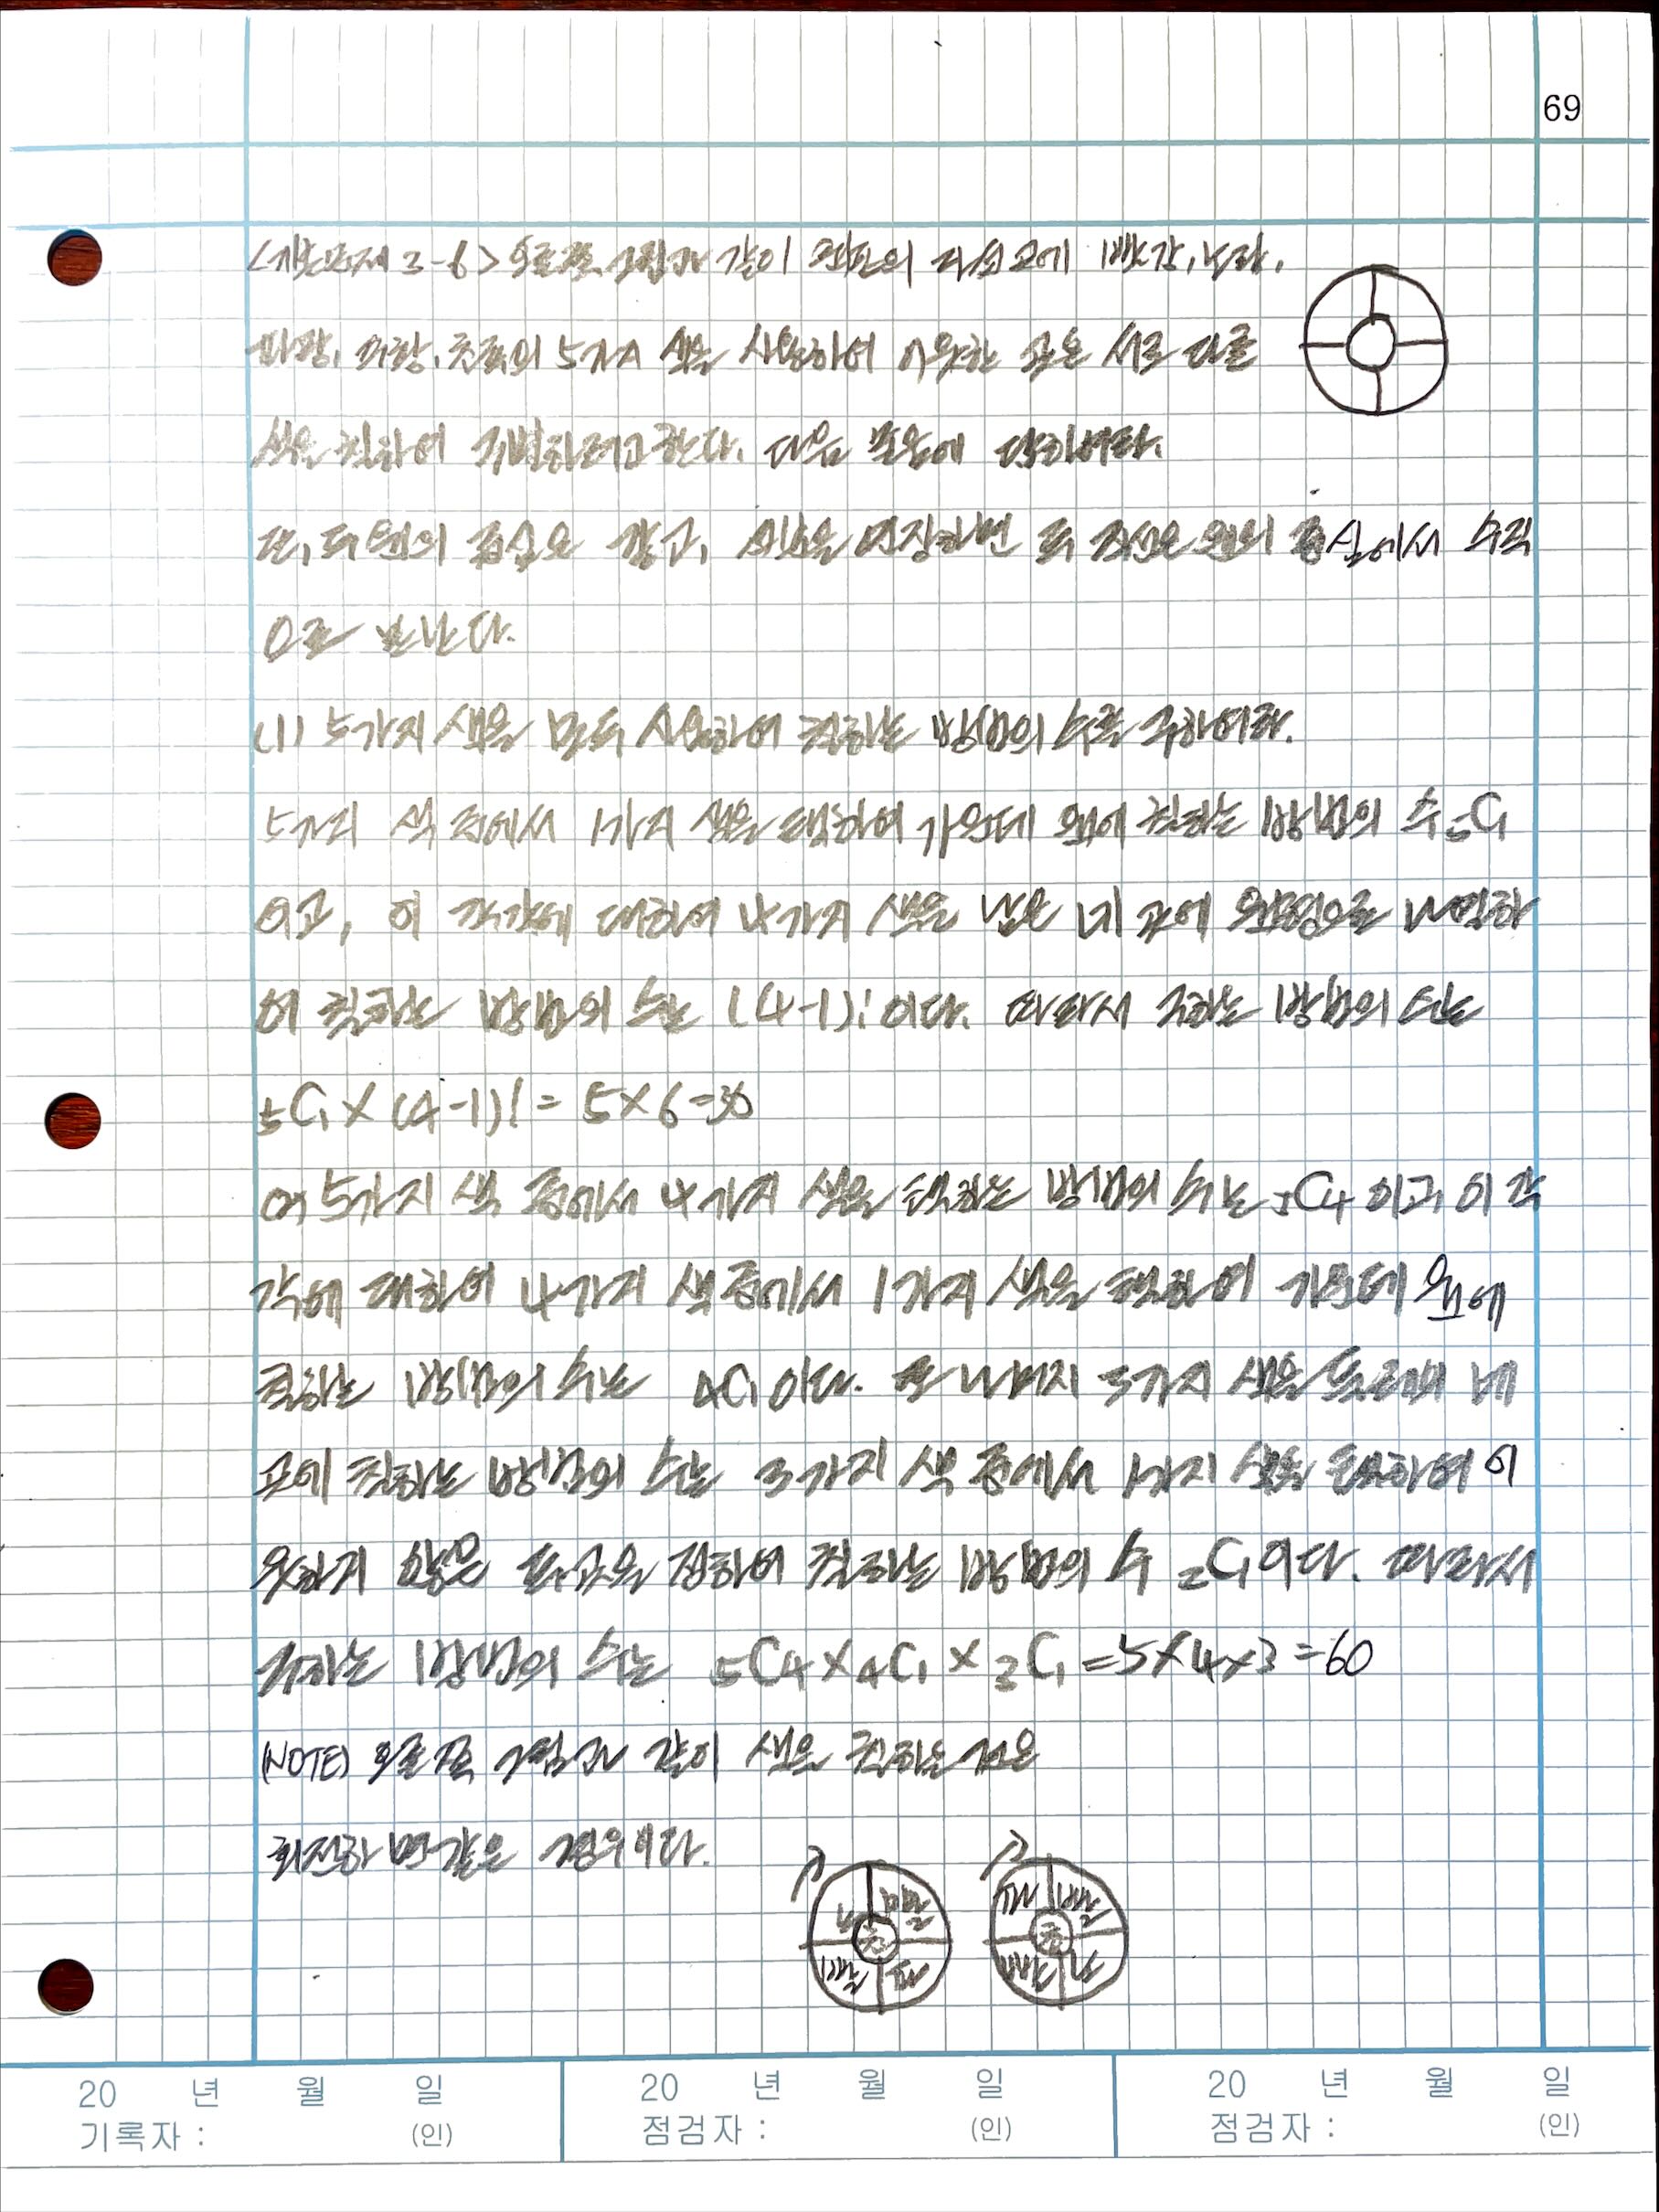 69
<기본문제 3-6> 오른쪽 그림과 같이 원판의 다섯 곳에 빨강, 노랑,
파랑, 검정, 초록의 5가지 색을 사용하여 이웃한 곳은 서로 다른
색을 칠하여 구별하려고 한다. 다음 물음에 답하여라.
단, 두 원의 중심은 같고, 선분을 연장하면 두 직선은 원의 중심에서 수직
으로 만난다.
(1) 5가지 색을 모두 사용하여 칠하는 방법의 수를 구하여라.
5가지 색 중에서 1가지 색을 택하여 가운데 원에 칠하는 방법의 수 ₅C₁
이고, 이 각각에 대하여 4가지 색을 남은 네 곳에 원형으로 나열하
여 칠하는 방법의 수는 (4-1)!이다. 따라서 구하는 방법의 수는
₅C₁ × (4-1)! = 5×6=30
5가지 색 중에서 4가지 색을 택하는 방법의 수는 ₅C₄이고, 이 각
각에 대하여 4가지 색 중에서 1가지 색을 택하여 가운데 원에
칠하는 방법의 수는 ₄C₁이다. 또 나머지 3가지 색을 둘레의 네
곳에 칠하는 방법의 수는 3가지 색 중에서 1가지 색을 택하여 이
웃하지 않은 두 곳을 정하여 칠하는 방법의 수 ₃C₁이다. 따라서
구하는 방법의 수는 ₅C₄×₄C₁×₃C₁=5×4×3=60
(NOTE) 오른쪽 그림과 같이 색을 칠하는 것은
회전하면 같은 경우이다.
20 년 월 일 20 년 월 일 20 년 월 일
기록자 : (인) 점검자 : (인) 점검자 : (인)